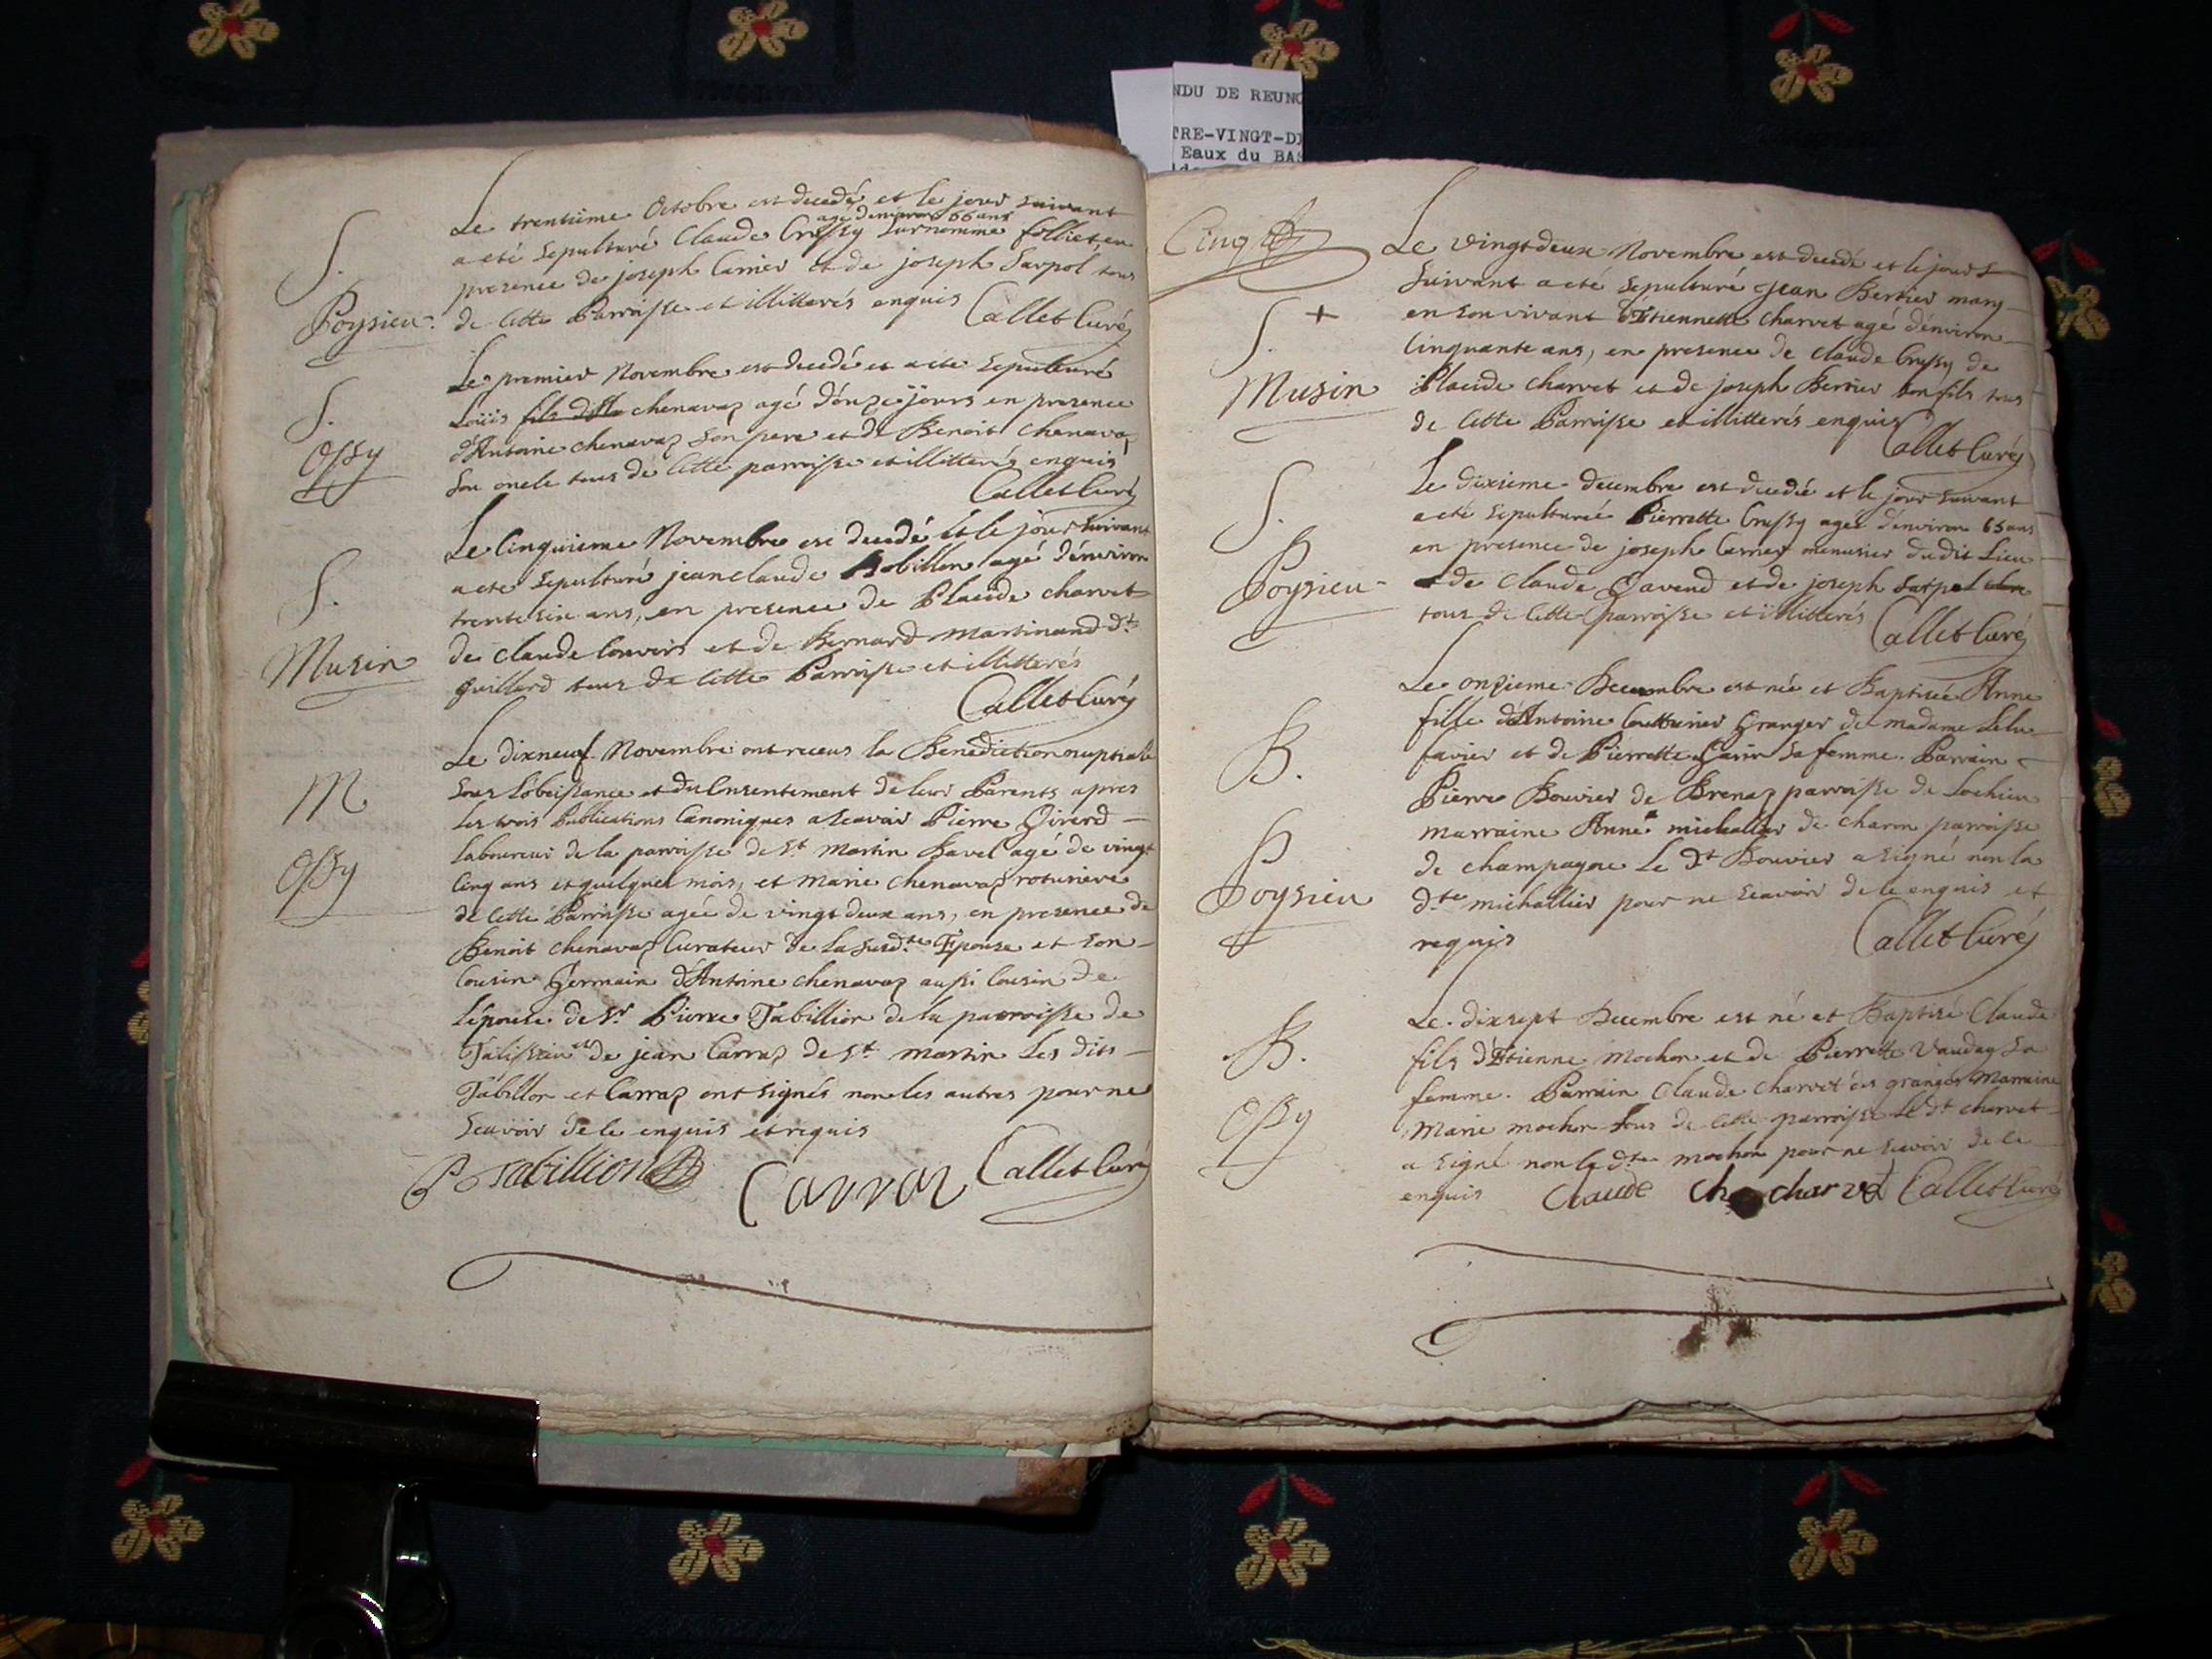 NDU DE REUNO
TRE-VINGT-DI
Eaux du BAS
S.
Poysieu
Le trentième Octobre est decedé et le jour suivant
agé denviron 66 ans
a eté sepulturé Claude Crussy surnommé folliet, en
presence de joseph Carrier et de joseph Sarpol tous
de cette Parroisse et illitterés enquis Callet Curé
S.
Ossy
Le premier Novembre est decedé et a ete sepulturé
Loüis chenavaz agé d'onze jours en presence
d'Antoine chenavaz son pere et de Benoit chenavaz
son oncle tous de cette parroisse et illitterés enquis
Callet Curé
S.
Musin
Le Cinquieme Novembre est decedé et le jour suivant
a ete sepulturé jean claude Robillon agé d'environ
trente six ans, en presence de Placide charvet
de claude Convers et de Bernard Martinand dt
guillard tous de cette Parroisse et illitterés
Callet Curé
M
Ossy
Le dixneuf Novembre ont receus la Benediction nuptiale
sous l'obeissance et du Consentement de leur Parents apres
les trois Publications Canoniques a scavoir Pierre Girerd
laboureur de la parroisse de St Martin Bavel agé de vingt
cinq ans et quelques mois, et marie chenavaz roturiere
de cette Parroisse agée de vingt deux ans, en presence de
Benoit chenavaz Curateur de la susdte Epouse et son
cousin Germain d'Antoine chenavaz aussi Cousin de
l'épouse de Sr Pierre Tabillion de la parroisse de
Talissieu et de jean Carraz de St martin Les dits
Tabillon et Carraz ont signés non les autres pour ne
scavoir de le enquis et requis
P Tabillion Carraz Callet Curé
Cinq
S. +
Musin
Le vingtdeux Novembre est decedé et le jour
suivant a eté sepulturé jean Bertier mary
en son vivant d'Etiennette charvet agé d'environ
Cinquante ans, en presence de claude Crussy de
Placide charvet et de joseph Bertier son fils tous
de cette Parroisse et illitterés enquis
Callet Curé
S.
Poysieu
Le dixieme decembre est decedée et le jour suivant
a eté sepulturée Pierrette Crussy agée d'environ 65 ans
en presence de joseph Carrier menusier dudit Lieu
de Claude Gavend et de joseph Sarpol
tous de cette parroisse et illitterés
Callet Curé
B.
Poysieu
Le onzieme Decembre est née et Baptisée Anne
fille d'Antoine Coutturier Granger de madame
favier et de Pierrette Garin sa femme. Parrain
Pierre Bouvier de Brenaz parroisse de Lochieu
marraine Anne michallier de charon parroisse
de champagne Le dt Bouvier a signé non la
dte michallier pour ne scavoir de le enquis et
requis Callet Curé
B.
Ossy
Le dixsept Decembre est né et Baptisé Claude
fils d'Etienne Mochon et de Pierrette Vauday sa
femme. Parrain Claude charvet des granges Marraine
Marie mochon tous de cette parroisse Le dt charvet
a signé non la dte mochon pour ne scavoir de le
enquis Claude ch charvet Callet Curé